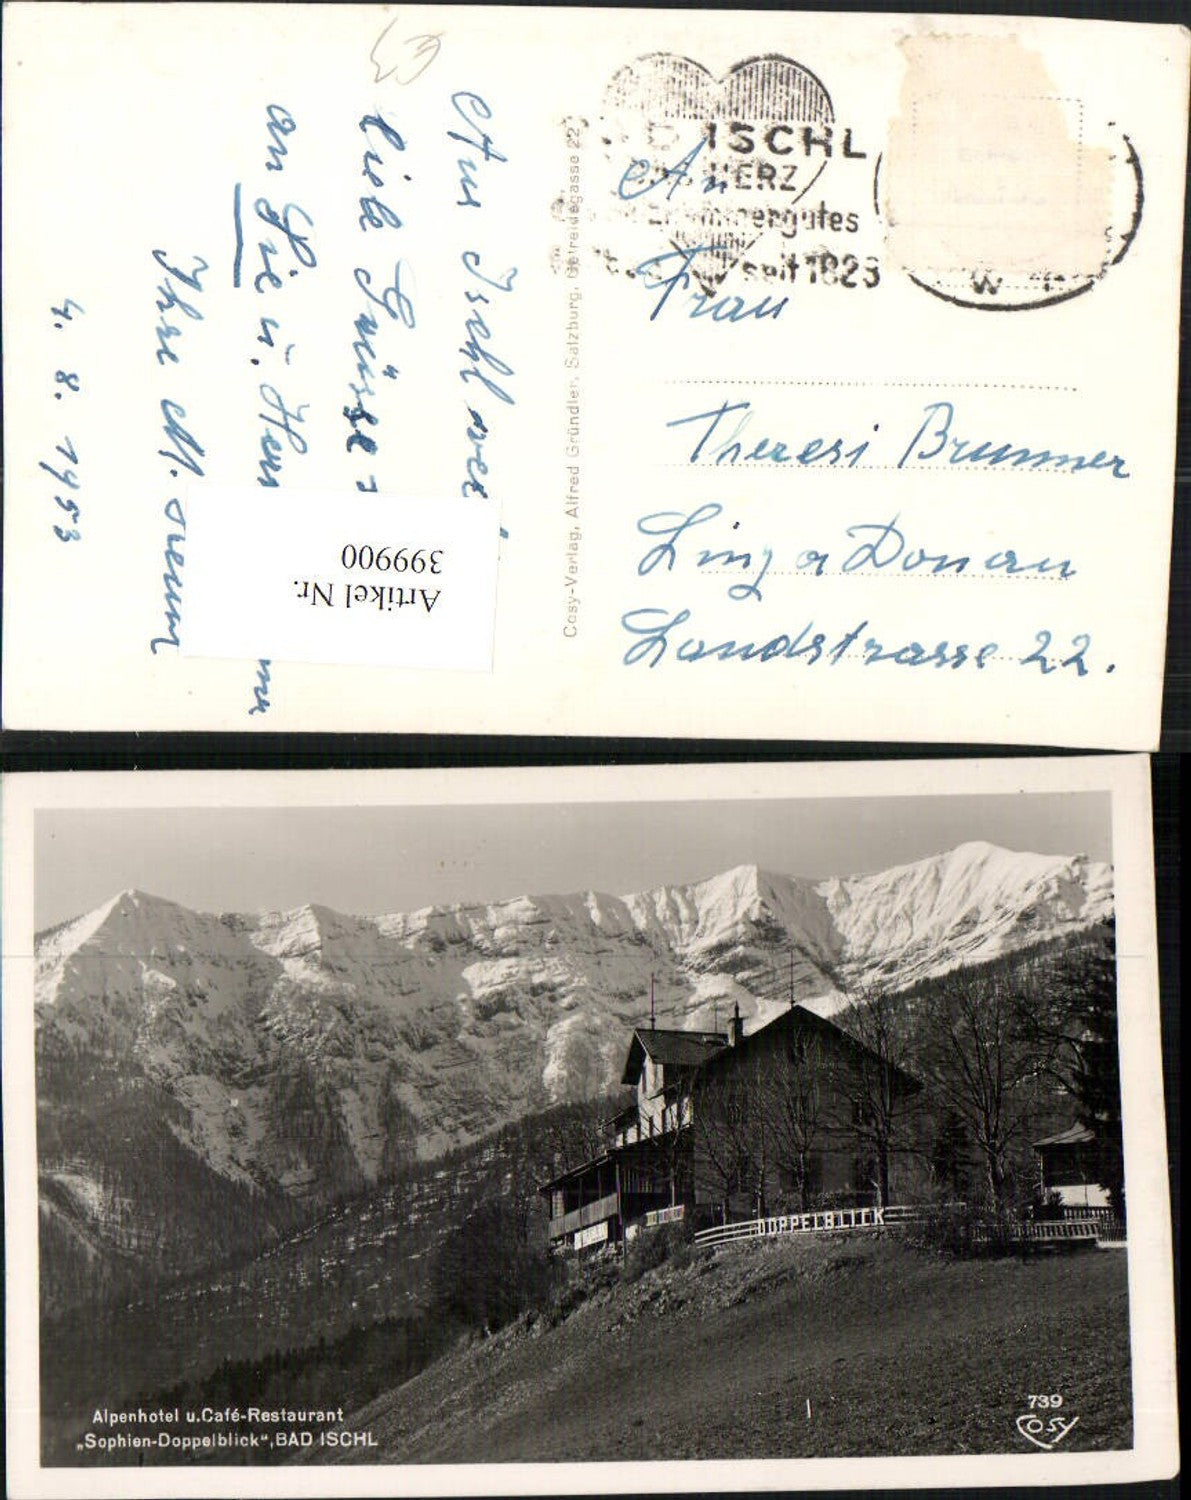 Aus Ischl
liebe Grüsse
an Sie u. Herrn
Ihre M.
4. 8. 1953
Artikel Nr.
399900
Cosy-Verlag, Alfred Gründler, Salzburg, Getreidegasse 22
ISCHL
HERZ
seit 1823
An
Frau
Theresi Brunner
Linz a Donau
Landstrasse 22.
DOPPELBLICK
Alpenhotel u. Café-Restaurant
„Sophien-Doppelblick“, BAD ISCHL
739
COSY